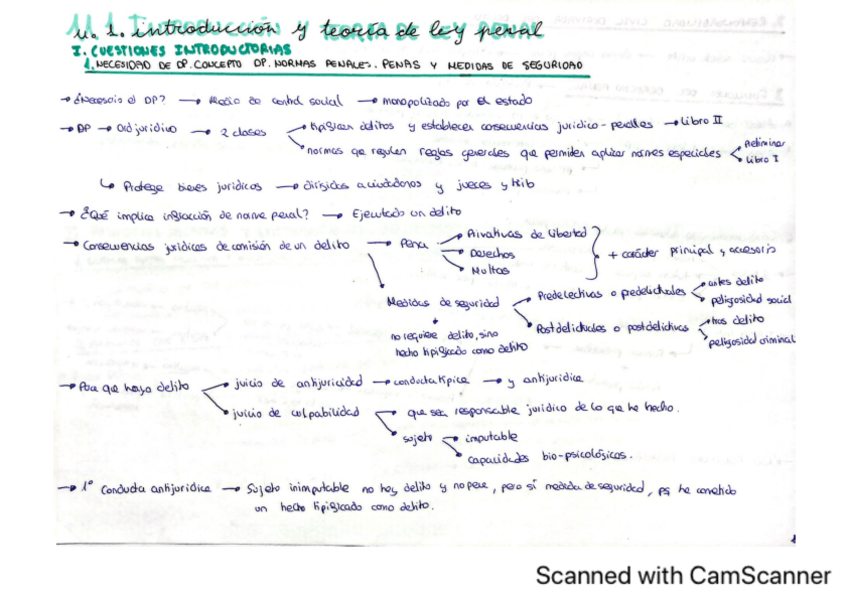 U. 1. introducción y teoría de ley penal
I. CUESTIONES INTRODUCTORIAS
1. NECESIDAD DE DP. CONCEPTO DP. NORMAS PENALES. PENAS Y MEDIDAS DE SEGURIDAD
→ ¿Necesario el DP? → Medio de control social → monopolizado por el estado
→ DP → Ord jurídico → 2 clases
tipifican delitos y establecen consecuencias jurídico-penales → Libro II
normas que regulan reglas generales que permiten aplicar normas especiales
Preliminar
Libro I
↳ Protege bienes jurídicos → dirigidas a ciudadanos y jueces y trib
→ ¿Qué implica infracción de norma penal? → Ejecutado un delito
→ Consecuencias jurídicas de comisión de un delito → Pena
Privativas de libertad
Derechos
Multas
+ carácter principal y accesorio
Medidas de seguridad
no requiere delito, sino
hecho tipificado como delito
Predelictivas o predelictuales
antes delito
peligrosidad social
Postdelictuales o postdelictivas
tras delito
peligrosidad criminal
→ Para que haya delito
juicio de antijuricidad → conducta típica → y antijurídica
juicio de culpabilidad
que sea responsable jurídico de lo que ha hecho.
sujeto
imputable
capacidades bio-psicológicas.
→ 1º Conducta antijurídica → Sujeto inimputable no hay delito y no pena, pero sí medida de seguridad, pq ha cometido
un hecho tipificado como delito.
1
Scanned with CamScanner